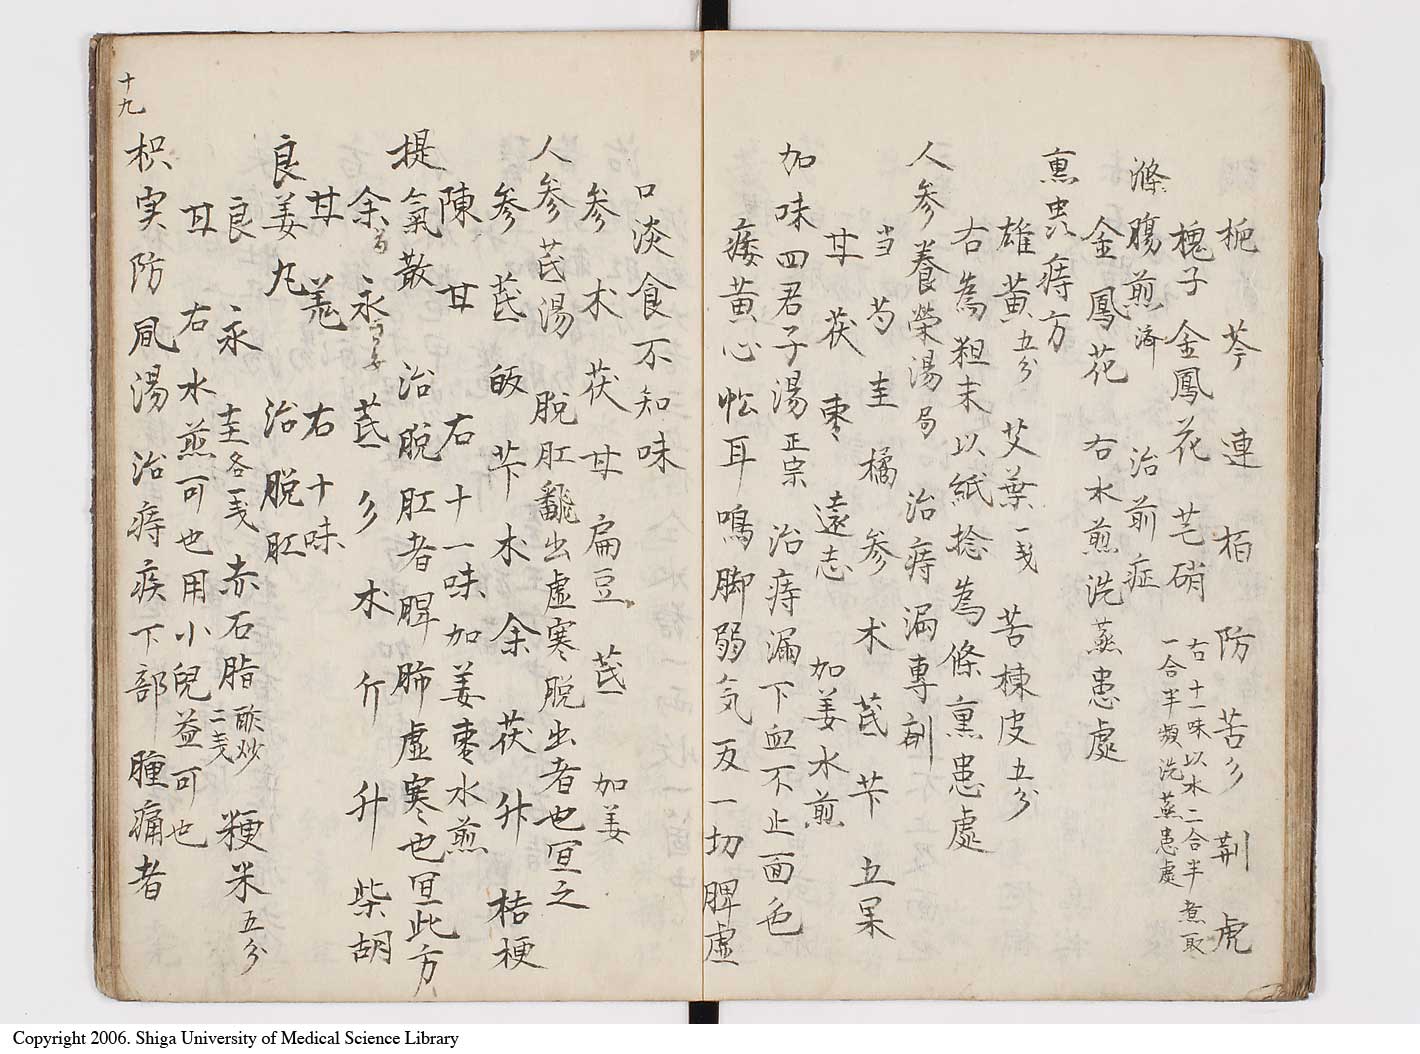 梔 芩 連 栢 防 苦 彡 荆 虎
槐子 金鳳花 芒硝 右十一味以水二合半煮取
一合半頻洗蒸患處
滌腸煎 済 治前症
金鳳花 右水煎洗蒸患處
熏虫痔方
雄黄五分 艾葉一戔 苦楝皮五分
右為粗末以紙捻為條熏患處
人参養榮湯局 治痔漏専剤
当 芍 圭 橘 参 朮 芪 芐 五果
甘 茯 棗 遠志 加姜水煎
加味四君子湯正宗 治痔漏下血不止面色
痿黄心忪耳鳴脚弱気乏一切脾虚
口淡食不知味
参 朮 茯 甘 扁豆 芪 加姜
人参芪湯 脱肛翻出虚寒脱出者也宜之
参 芪 皈 芐 朮 余 茯 升 桔梗
陳 甘 右十一味加姜棗水煎
提氣散 治脱肛者脾肺虚寒也宜此方
余 永 芪 彡 朮 斤 升 柴胡
甘 羌 右十味
良姜丸 治脱肛
良 永 圭各一戔 赤石脂酢炒二戔 粳米五分
甘 右水煎可也用小兒益可也
枳実防風湯 治痔疾下部腫痛者
十九
Copyright 2006. Shiga University of Medical Science Library